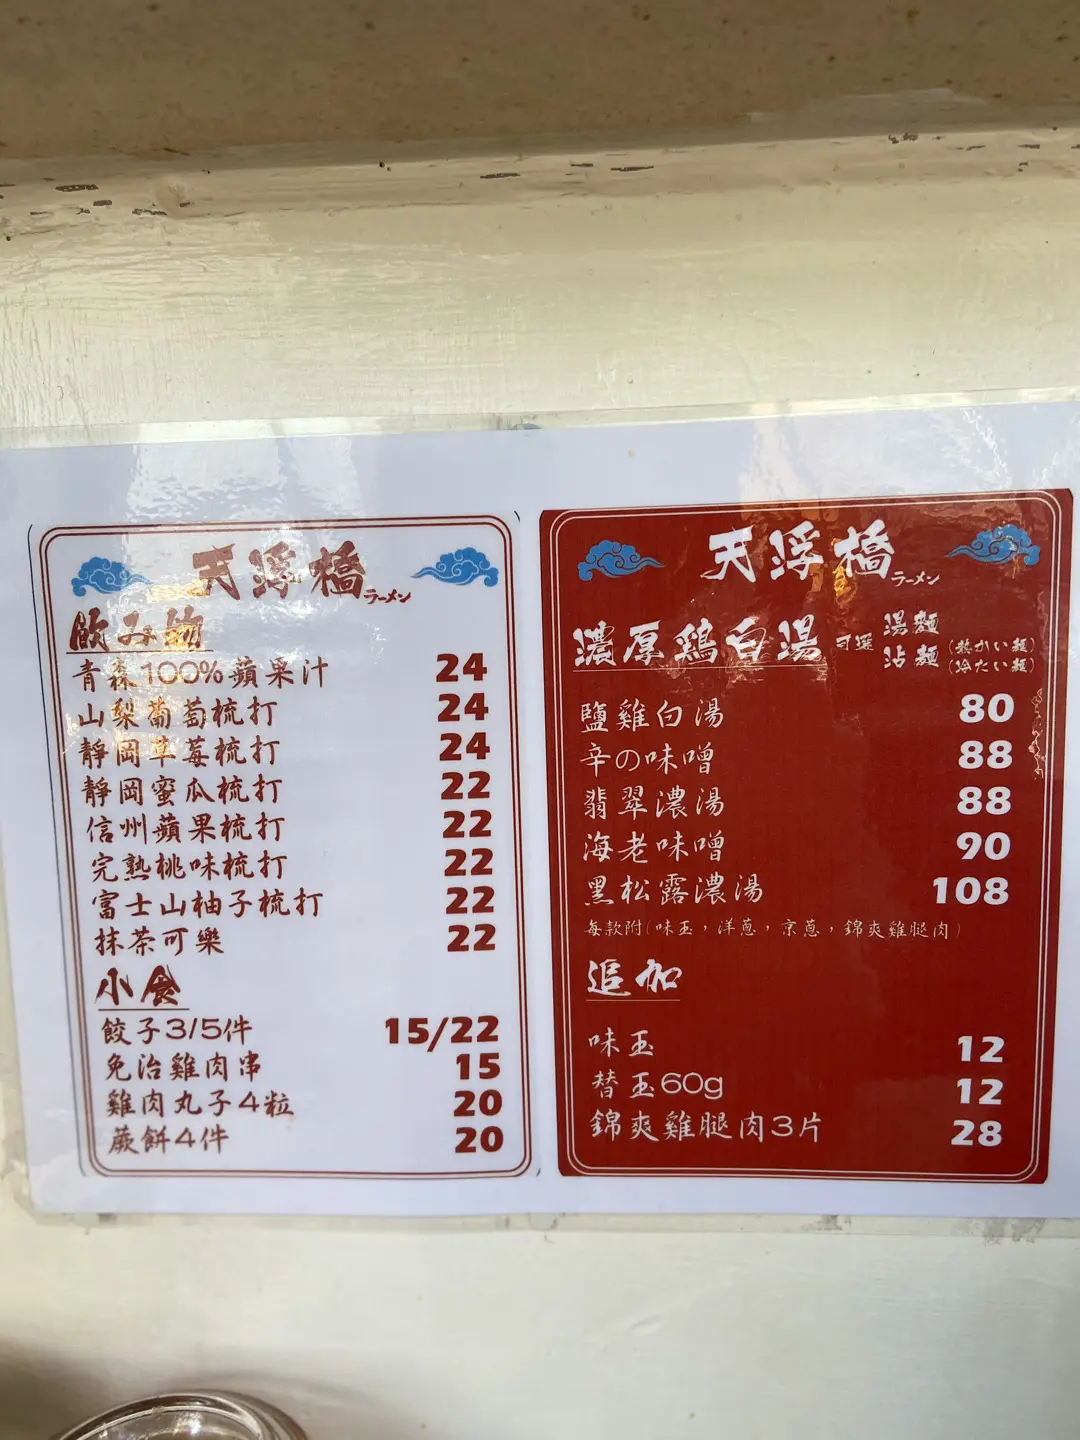 天浮橋
ラーメン
飲み物
青森100%蘋果汁 24
山梨葡萄梳打 24
靜岡草莓梳打 24
靜岡蜜瓜梳打 22
信州蘋果梳打 22
完熟桃味梳打 22
富士山柚子梳打 22
抹茶可樂 22
小食
餃子3/5件 15/22
免治雞肉串 15
雞肉丸子4粒 20
蕨餅4件 20
天浮橋
ラーメン
濃厚鶏白湯 可選 湯麵 (熱かい麺)
沾麵 (冷たい麺)
鹽雞白湯 80
辛の味噌 88
翡翠濃湯 88
海老味噌 90
黑松露濃湯 108
每款附(味玉，洋蔥，京蔥，錦爽雞腿肉)
追加
味玉 12
替玉60g 12
錦爽雞腿肉3片 28